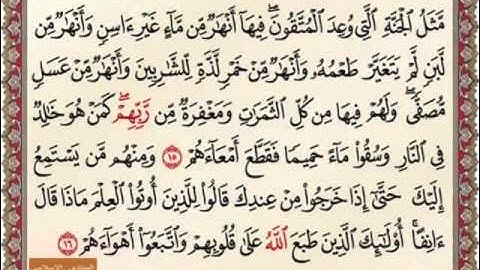 مَّثَلُ ٱلْجَنَّةِ ٱلَّتِى وُعِدَ ٱلْمُتَّقُونَ ۖ فِيهَآ أَنْهَٰرٌ مِّن مَّآءٍ غَيْرِ ءَاسِنٍ وَأَنْهَٰرٌ مِّن
لَّبَنٍ لَّمْ يَتَغَيَّرْ طَعْمُهُۥ وَأَنْهَٰرٌ مِّنْ خَمْرٍ لَّذَّةٍ لِّلشَّٰرِبِينَ وَأَنْهَٰرٌ مِّنْ عَسَلٍ
مُّصَفًّى ۖ وَلَهُمْ فِيهَا مِن كُلِّ ٱلثَّمَرَٰتِ وَمَغْفِرَةٌ مِّن رَّبِّهِمْ ۖ كَمَنْ هُوَ خَٰلِدٌ
فِى ٱلنَّارِ وَسُقُوا۟ مَآءً حَمِيمًا فَقَطَّعَ أَمْعَآءَهُمْ ١٥ وَمِنْهُم مَّن يَسْتَمِعُ
إِلَيْكَ حَتَّىٰٓ إِذَا خَرَجُوا۟ مِنْ عِندِكَ قَالُوا۟ لِلَّذِينَ أُوتُوا۟ ٱلْعِلْمَ مَاذَا قَالَ
ءَانِفًا ۚ أُو۟لَٰٓئِكَ ٱلَّذِينَ طَبَعَ ٱللَّهُ عَلَىٰ قُلُوبِهِمْ وَٱتَّبَعُوٓا۟ أَهْوَآءَهُمْ ١٦